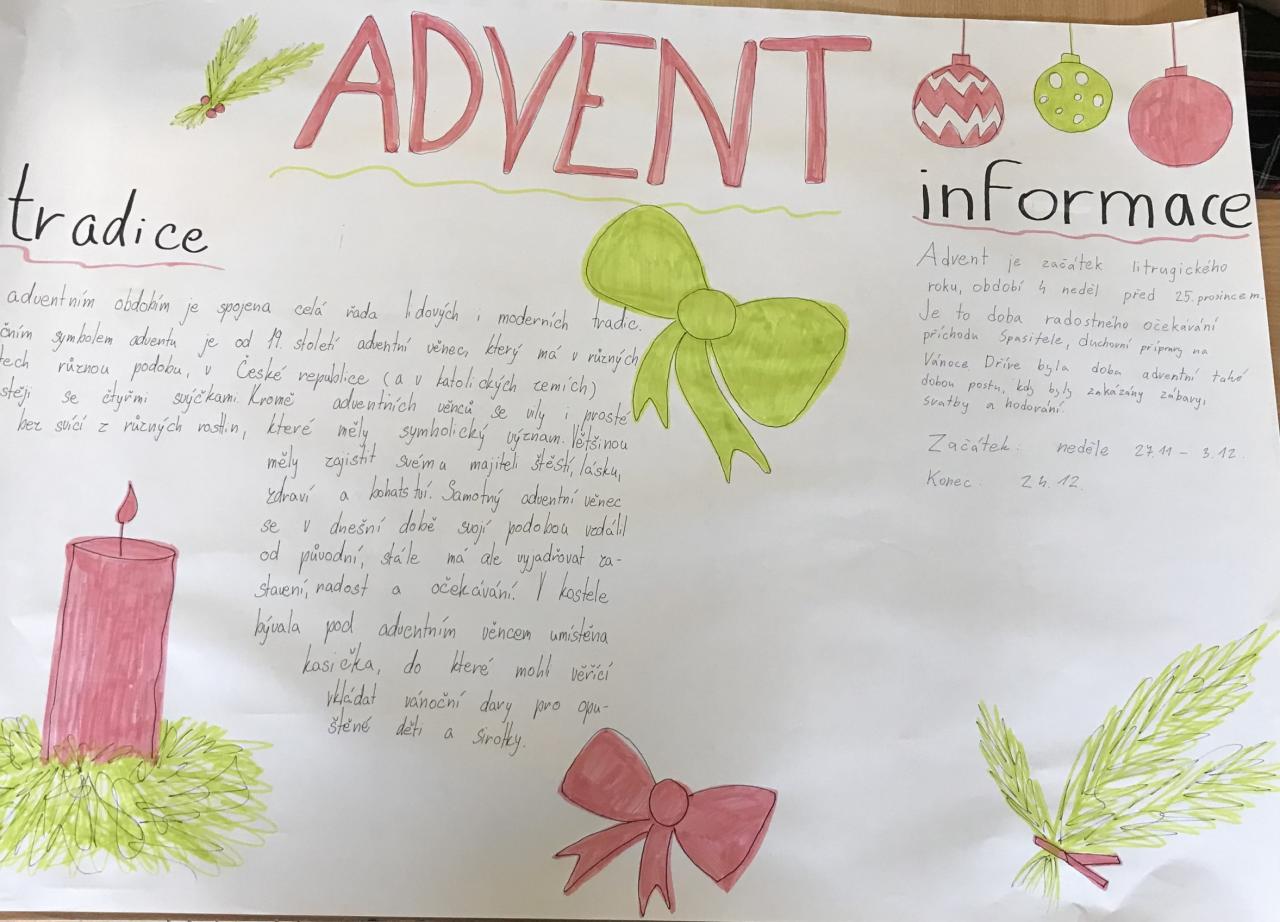 ADVENT
tradice
adventním obdobím je spojena celá řada lidových i moderních tradic.
čním symbolem adventu je od 19. století adventní věnec, který má v různých
tech různou podobu, v České republice (a v katolických zemích)
stěji se čtyřmi svýčkami. Kromě adventních věnců se vily i prosté
bez svící z různých rostlin, které měly symbolický význam. Většinou
měly zajistit svému majiteli štěstí, lásku,
zdraví a bohatství. Samotný adventní věnec
se v dnešní době svojí podobou vzdálil
od původní, stále má ale vyjadřovat za-
stavení, radost a očekávání. V kostele
bývala pod adventním věncem umístěna
kasička, do které mohli věřící
vkládat vánoční dary pro opu-
štěné děti a sirotky.
informace
Advent je začátek litrugického
roku, období 4 neděl před 25. prosincem.
Je to doba radostného očekávání
příchodu Spasitele, duchovní přípravy na
Vánoce. Dříve byla doba adventní také
dobou postu, kdy byly zakázány zábavy,
svatby a hodování.
Začátek: neděle 27.11 - 3.12.
Konec: 24.12.